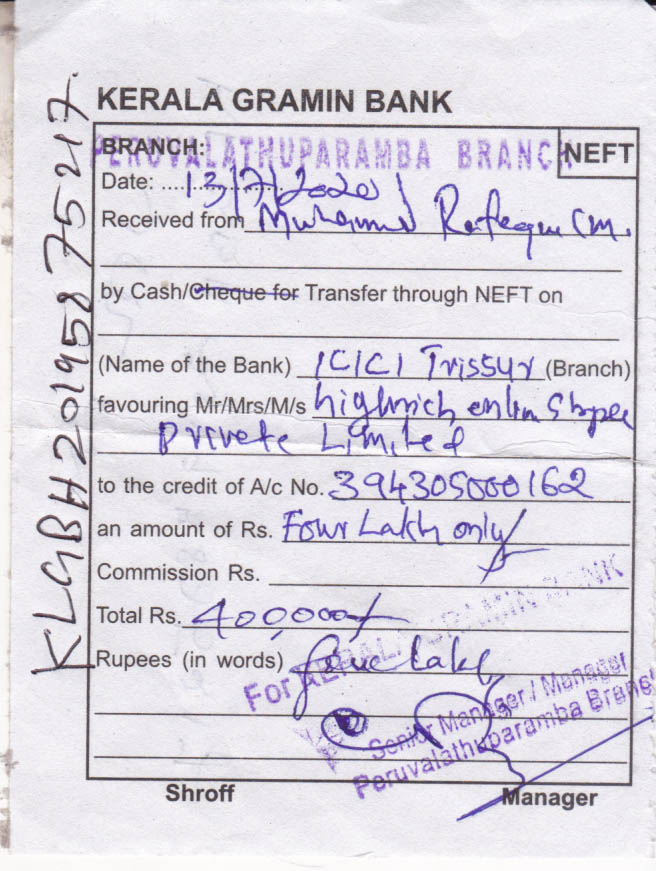 KERALA GRAMIN BANK
BRANCH: PERUVALATHUPARAMBA BRANCH
NEFT
Date: ....13/7/2020
Received from Muhammed Rafeeque CM.
by Cash/Cheque for Transfer through NEFT on
(Name of the Bank) ICICI Trissur (Branch)
favouring Mr/Mrs/M/s highrich onlin Shopee
Private Limited
to the credit of A/c No. 394305000162
an amount of Rs. Four Lakh only
Commission Rs.
Total Rs. 400,000/-
Rupees (in words) four lakh
For KERALA GRAMIN BANK
Senior Manager / Manager
Peruvalathuparamba Branch
Shroff
Manager
KLGBH20195875217.